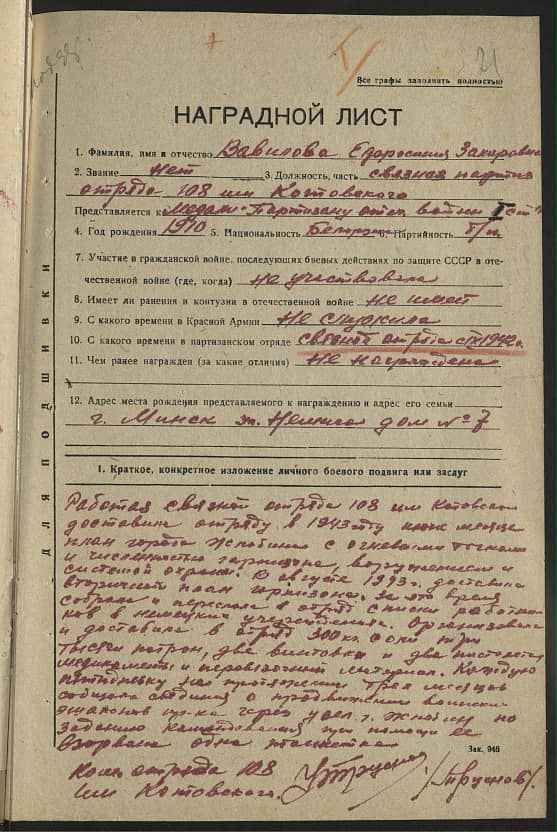 21
Все графы заполнять полностью
НАГРАДНОЙ ЛИСТ
1. Фамилия, имя и отчество Вавилова Ефросиния Захаровна
2. Звание Нет 3. Должность, часть связная партиз
отряда 108 им Котовского
Представляется к Медали "Партизану отеч войны I ст"
4. Год рождения 1910 5. Национальность Белорус 6. Партийность б/п
7. Участие в гражданской войне, последующих боевых действиях по защите СССР в оте-
чественной войне (где, когда) не участвовала
8. Имеет ли ранения и контузии в отечественной войне не имеет
9. С какого времени в Красной Армии Не служила
10. С какого времени в партизанском отряде связной отряда с 1942 г.
11. Чем ранее награжден (за какие отличия) Не награждена
12. Адрес места рождения представляемого к награждению и адрес его семьи
г. Минск дом № 7
1. Краткое, конкретное изложение личного боевого подвига или заслуг
Работая связной отряда 108 им Котовского
доставила отряду в 1943 году июне месяце
план города Жлобина с огневыми точками
и численностью гарнизона, вооружением и
системой охраны. В августе 1943 г. доставила
вторичной план гарнизона. За это время
собрала и переслала в отряд списки работни-
ков в немецких учреждениях. Организовала
и доставила в отряд 300 кг соли три
тысячи патрон, две винтовки и два пистолета
медикаменты и перевязочный материал. Каждую
пятидневку на протяжении трех месяцев
сообщала сведения о продвижении воинских
эшелонов пр-ка через г. Жлобин по
заданию командования при помощи ее
взорвана одна
Ком. отряда 108
им Котовского.
Зак. 946
ДЛЯ ПОДШИВКИ